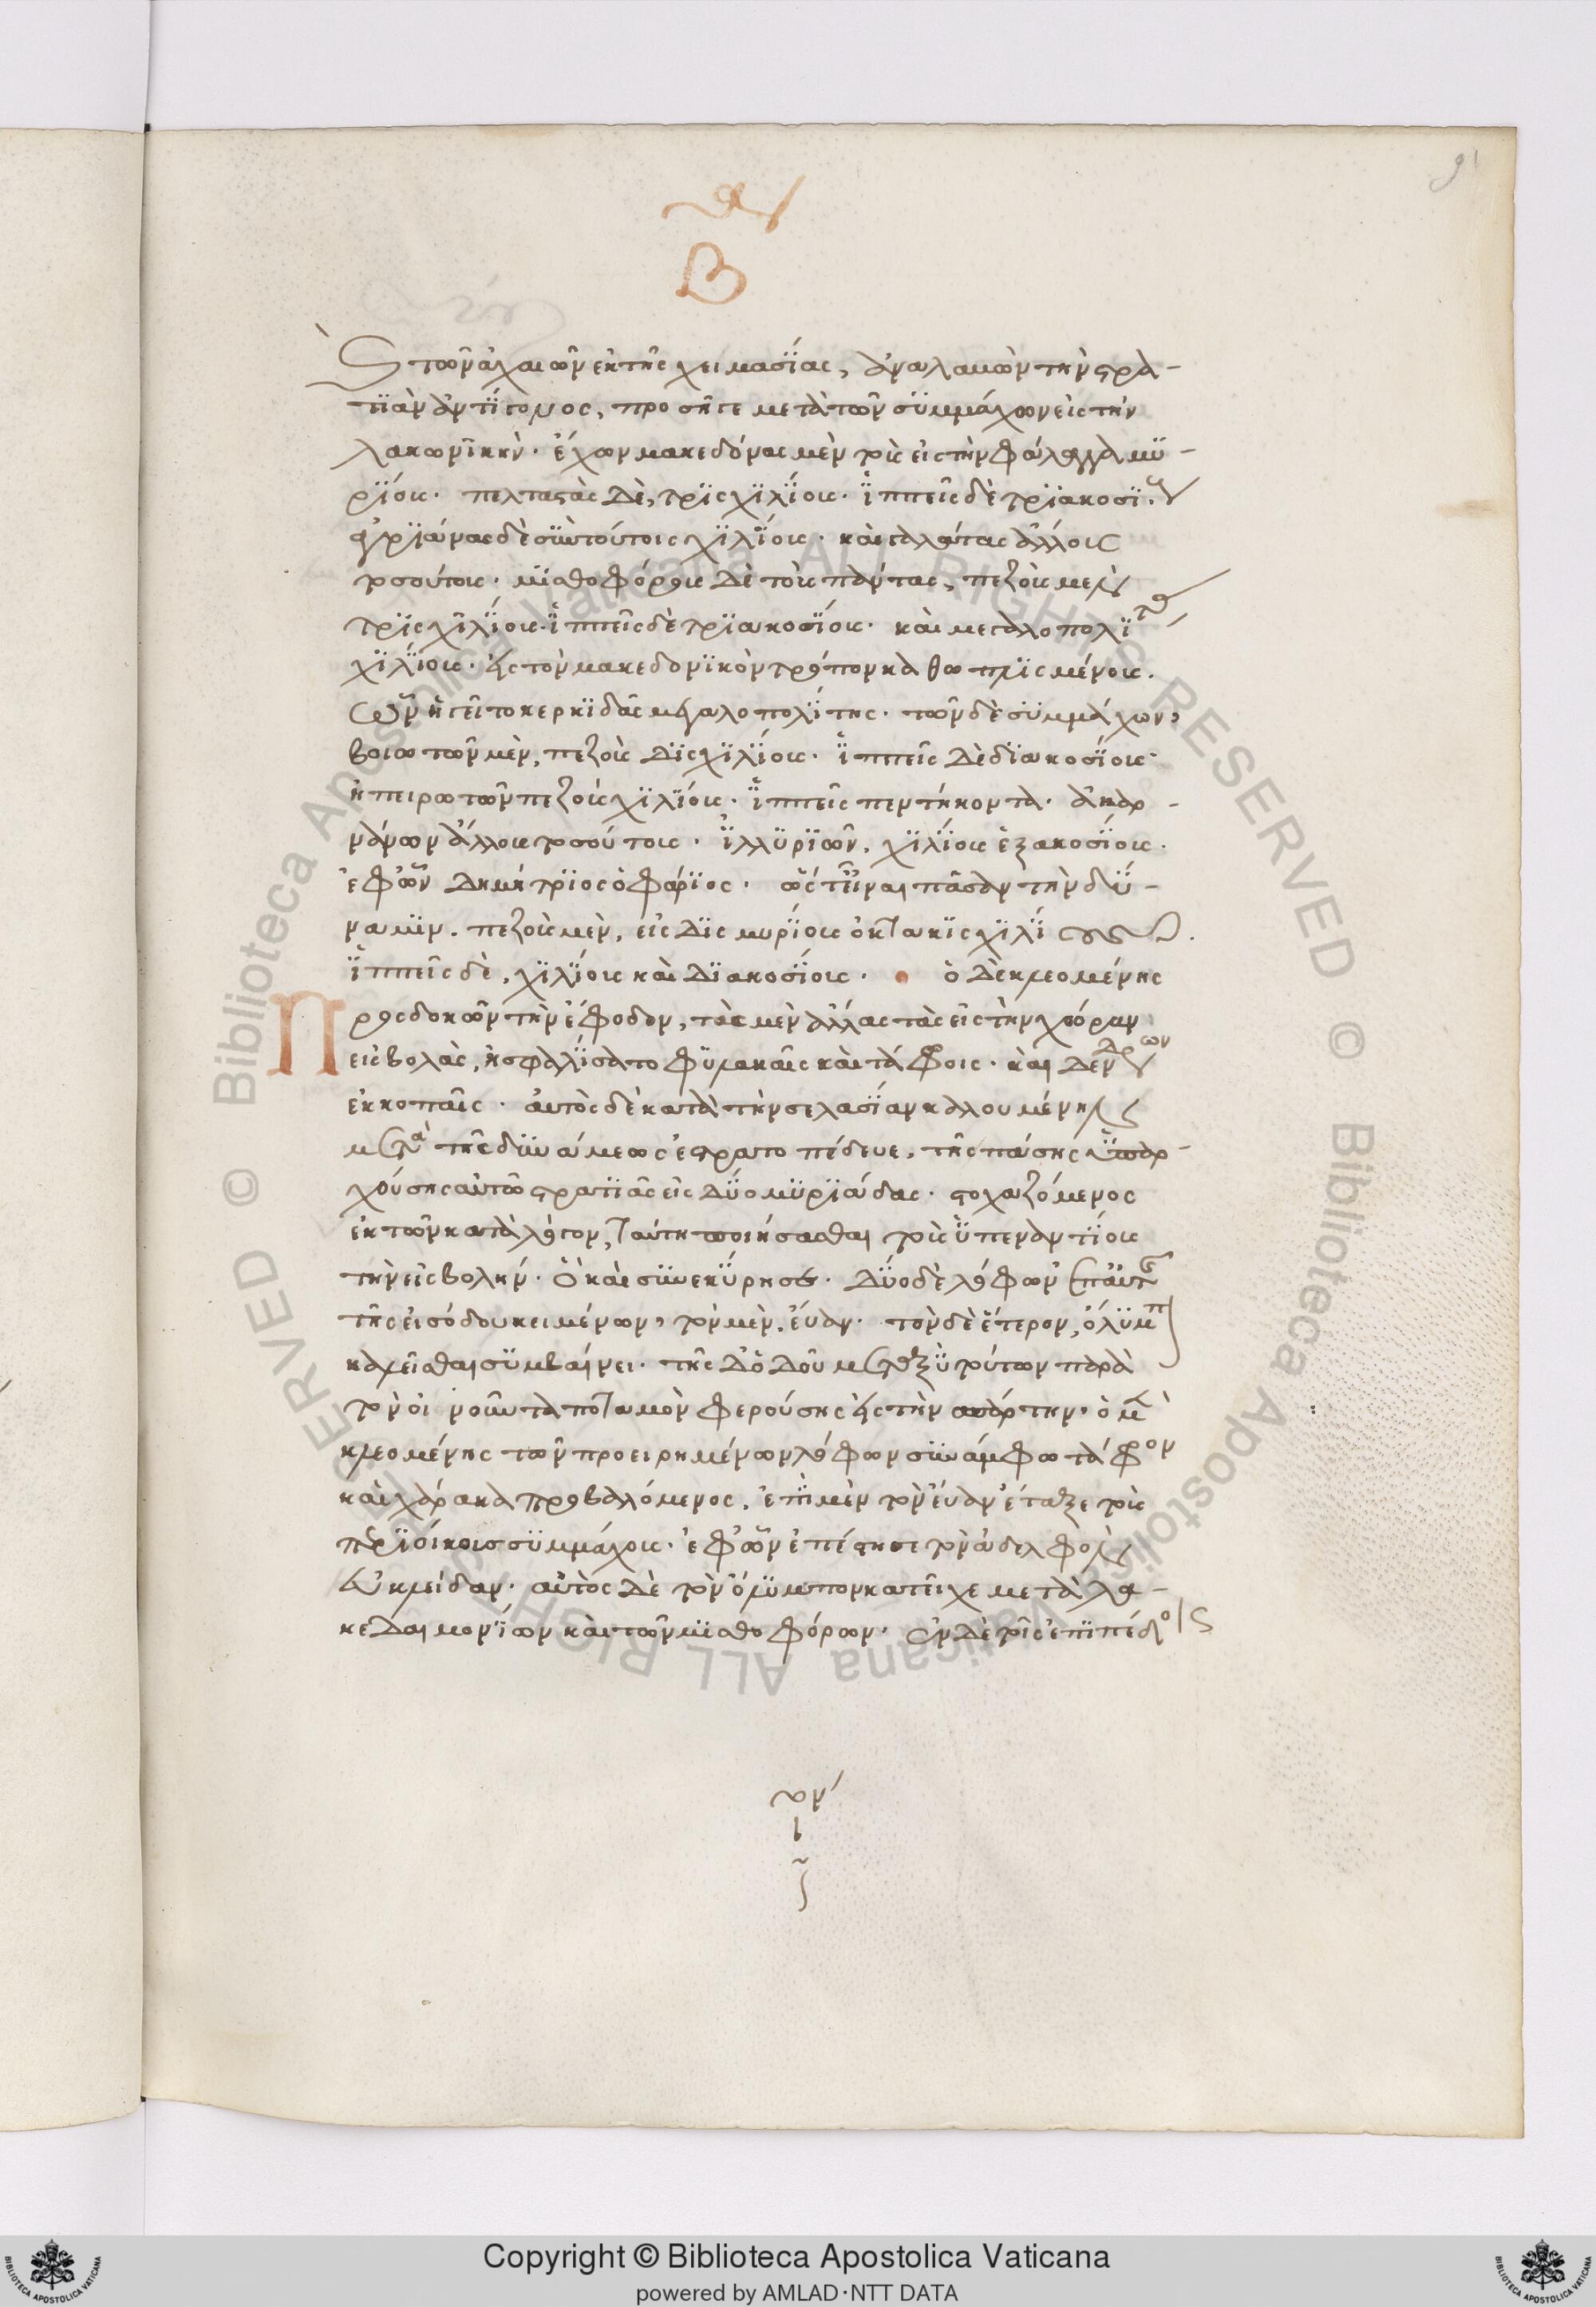 91
Β
καὶ τῶν ἀχαιῶν ἐκ τῆς χειμασίας, ἀναλαβὼν τὴν στρα-
τιὰν ἀντίγονος, προῆγε μετὰ τῶν συμμάχων εἰς τὴν
λακωνικὴν· ἔχων μακεδόνας μὲν τοὺς εἰς τὴν φάλαγγα μυ-
ρίους· πελταστὰς δὲ, τρισχιλίους· ἱππεῖς δὲ τριακοσί.
ἀγριάνας δὲ σὺν τούτοις χιλίους· καὶ γαλάτας ἄλλους
τοσούτους· μισθοφόρους δὲ τοὺς πάντας, πεζοὺς μὲν
τρισχιλίους· ἱππεῖς δὲ τριακοσίους· καὶ μεγαλοπολίτας
χιλίους· εἰς τὸν μακεδονικὸν τρόπον καθωπλισμένους.
ὧν ἡγεῖτο κερκιδᾶς μεγαλοπολίτης· τῶν δὲ συμμάχων,
βοιωτῶν μὲν, πεζοὺς δισχιλίους· ἱππεῖς δὲ διακοσίους·
ἠπειρωτῶν πεζοὺς χιλίους· ἱππεῖς πεντήκοντα· ἀκαρ-
νάνων ἄλλους τοσούτους· ἰλλυριῶν, χιλίους ἑξακοσίους.
ἐφ' ὧν δημήτριος ὁ φάριος· ὥστ' εἶναι πᾶσαν τὴν δύ-
ναμιν. πεζοὺς μὲν, εἰς δισμυρίους ὀκτακισχιλίους.
ἱππεῖς δὲ, χιλίους καὶ διακοσίους· ὁ δὲ κλεομένης
Προσδοκῶν τὴν ἔφοδον, τὰς μὲν ἄλλας τὰς εἰς τὴν χώραν
εἰσβολὰς, ἠσφαλίσατο φυλακαῖς καὶ τάφροις· καὶ δένδρων
ἐκκοπαῖς· αὐτὸς δὲ κατὰ τὴν σελασίαν καλουμένην
μετὰ τῆς δυνάμεως ἐστρατοπέδευε, τῆς πάσης ὑπαρ-
χούσης αὐτῶ στρατιᾶς εἰς δύο μυριάδας· στοχαζόμενος
ἐκ τῶν κατὰ λόγον, ταύτη ποιήσασθαι τοὺς ὑπεναντίους
τὴν εἰσβολήν· ὃ καὶ συνεκύρησε· δύο δὲ λόφων ἐπ' αὐτῆς
τῆς εἰσόδου κειμένων, τὸν μὲν, εὔαν· τὸν δὲ ἕτερον, ὄλυμπον
καλεῖσθαι συμβαίνει· τῆς δ' ὁδοῦ μεταξὺ τούτων παρὰ
τὸν οἰνοῦντα ποταμὸν φερούσης εἰς τὴν σπάρτην, ὁ μὲν
κλεομένης τῶν προειρημένων λόφων συνάμφω τάφρον
καὶ χάρακα προβαλόμενος, ἐπὶ μὲν τὸν εὔαν ἔταξε τοὺς
περιοίκους συμμάχους· ἐφ' ὧν ἐπέστησε τὸν ἀδελφὸν
εὐκλείδαν· αὐτὸς δὲ τὸν ὄλυμπον κατεῖχε μετὰ λα-
κεδαιμονίων καὶ τῶν μισθοφόρων· ἐν δὲ τοῖς ἐπιπέδοις
Copyright © Biblioteca Apostolica Vaticana
powered by AMLAD·NTT DATA